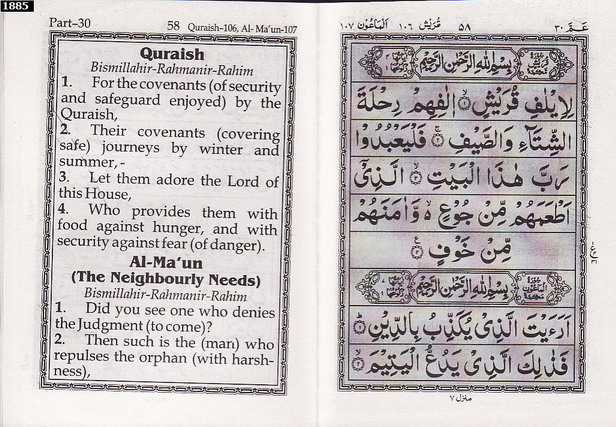 1885
Part-30 58 Quraish-106, Al- Ma'un-107
Quraish
Bismillahir-Rahmanir-Rahim
1. For the covenants (of security
and safeguard enjoyed) by the
Quraish,
2. Their covenants (covering
safe) journeys by winter and
summer, -
3. Let them adore the Lord of
this House,
4. Who provides them with
food against hunger, and with
security against fear (of danger).
Al-Ma'un
(The Neighbourly Needs)
Bismillahir-Rahmanir-Rahim
1. Did you see one who denies
the Judgment (to come)?
2. Then such is the (man) who
repulses the orphan (with harsh-
ness),
عَمَّ ٣٠ ٥٨ قُرَيْش ١٠٦ الْمَاعُوْن ١٠٧
بِسْمِ اللهِ الرَّحْمٰنِ الرَّحِيْمِ
لِاِيْلٰفِ قُرَيْشٍ ۝١ اٖلٰفِهِمْ رِحْلَةَ
الشِّتَآءِ وَالصَّيْفِ ۝٢ فَلْيَعْبُدُوْا
رَبَّ هٰذَا الْبَيْتِ ۝٣ الَّذِيْٓ
اَطْعَمَهُمْ مِّنْ جُوْعٍ ەۙ وَّاٰمَنَهُمْ
مِّنْ خَوْفٍ ۝٤
بِسْمِ اللهِ الرَّحْمٰنِ الرَّحِيْمِ
اَرَءَيْتَ الَّذِيْ يُكَذِّبُ بِالدِّيْنِ ۝١
فَذٰلِكَ الَّذِيْ يَدُعُّ الْيَتِيْمَ ۝٢
منزل ٧